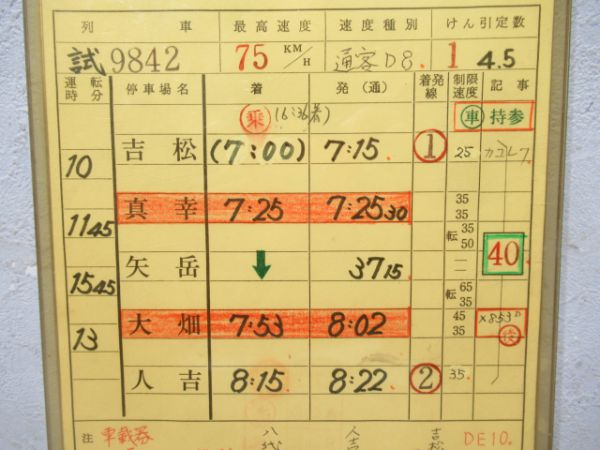 列車 最高速度 速度種別 けん引定数
試9842 75 KM/H 通客D8. 1 4.5
運転時分 停車場名 着 発(通) 着発線 制限速度 記事
乗 (6:36着) 車 持参
吉松 (7:00) 7:15. 1 25
10
35
真幸 7:25 7:2530 35
1145 転 35 50 40
矢岳 ↓ 3715. — —
1545 転 65 35
大畑 7:53 8:02 45 35 ×853D
13
人吉 8:15. 8:22. 2 35.
注 車載器 八代 人吉 吉松 DE10.